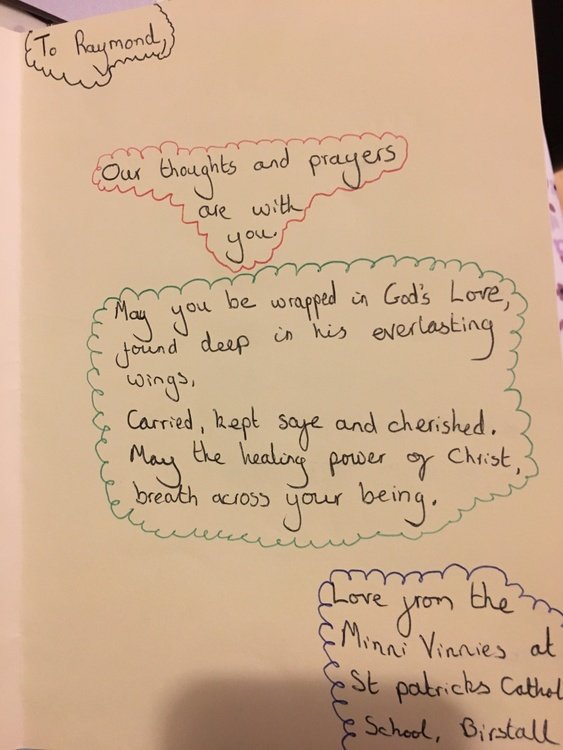 To Raymond,
Our thoughts and prayers
are with
you.
May you be wrapped in God's Love,
found deep in his everlasting
wings,
Carried, kept safe and cherished.
May the healing power of Christ,
breath across your being.
Love from the
Minni Vinnies at
St patricks Cathol
School, Birstall